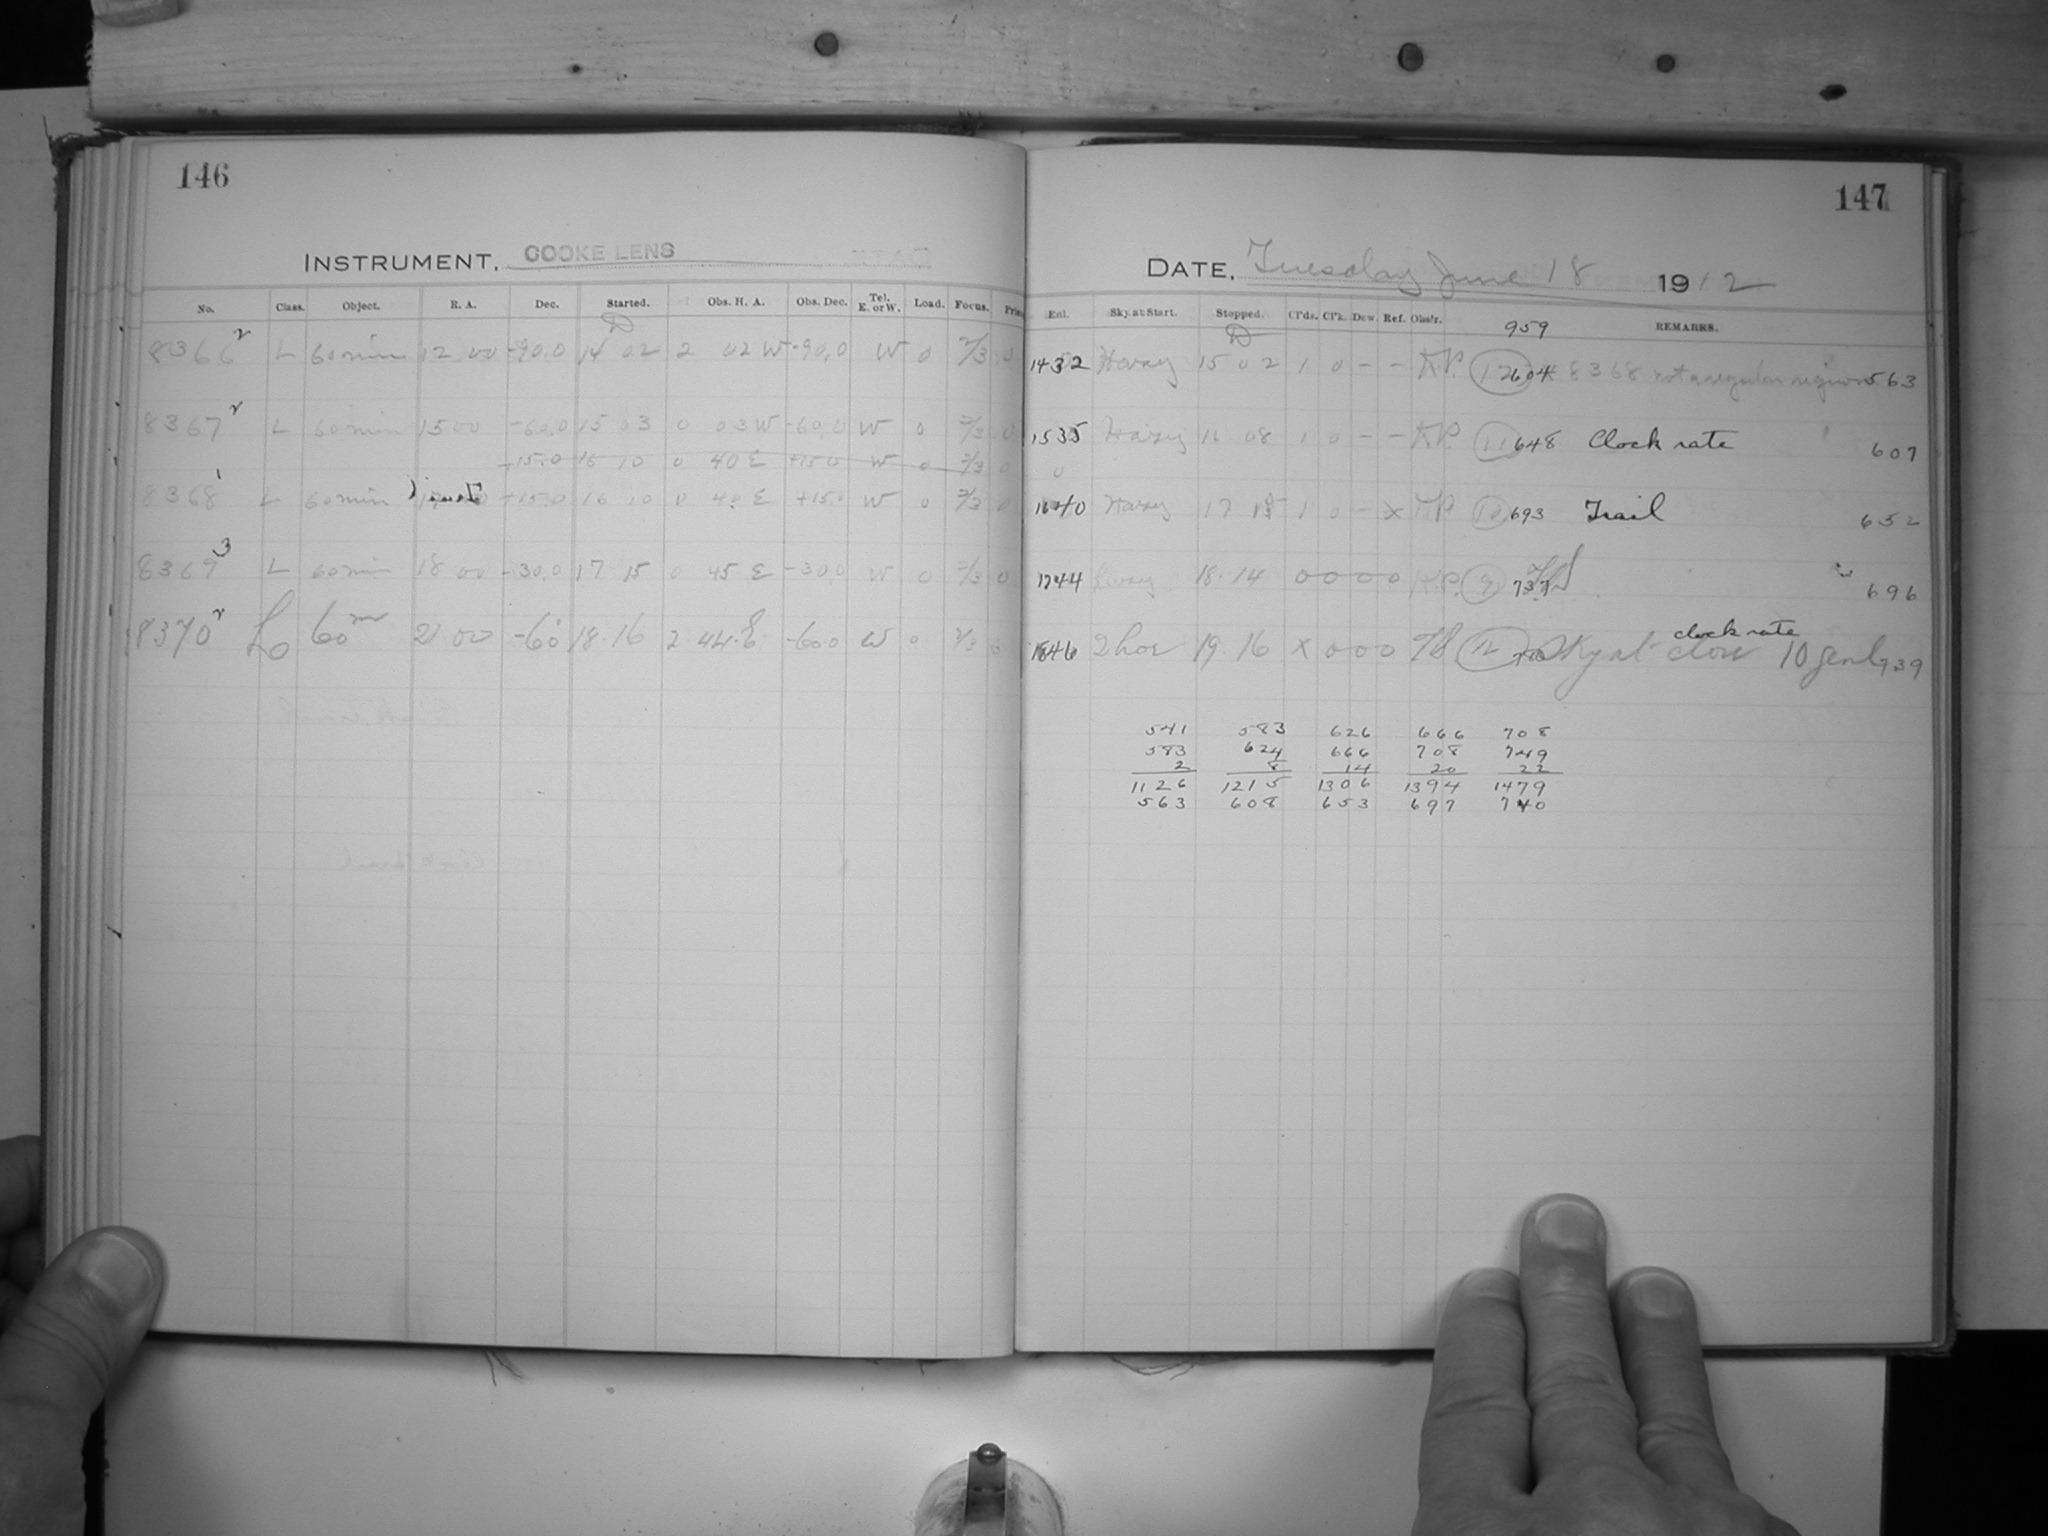 146
INSTRUMENT, COOKE LENS
No. Class. Object. R. A. Dec. Started. Obs. H. A. Obs. Dec. Tel. E. or W. Load. Focus.
8366 2 L 60 min 12 00 -90.0 14 02 2 02 W -90.0 W 0 7/3 0
8367 2 L 60 min 15 00 -60.0 15 03 0 03 W -60.0 W 0 7/3 0
+15.0 16 10 0 40 E +15.0 W 0 7/3 0
8368 1 L 60 min +15.0 16 10 0 40 E +15.0 W 0 7/3 0
8369 3 L 60 min 18 00 -30.0 17 15 0 45 E -30.0 W 0 7/3 0
8370 2 60 m 21 00 -60 18.16 2 44.E -60.0 W 0 7/3 0
147
DATE, Tuesday June 18 1912
Enl. Sky at Start. Stopped. Cl'ds. Cl'k. Dew. Ref. Obs'r. 959 REMARKS.
1432 15 02 1 0 - - K.P. 12 604 8368 not a regular region 563
1535 16 08 1 0 - - K.P. 11 648 Clock rate 607
0
1640 17 1 0 - x K.P. 693 Trail 652
1744 18.14 0 0 0 0 K.P. 9 737 696
1846 19.16 x 0 0 0 12 Sky at close 10 clock rate 739
541 583 626 666 708
583 624 666 708 749
2 8 14 20 22
1126 1215 1306 1394 1479
563 608 653 697 740